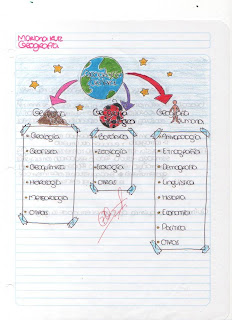 Mariana Ruiz
Geografía
Geografía
Humana
Geología
Geofísica
Geoquímica
Hidrología
Meteorología
Otras
Botánica
Zoología
Ecología
Otras
Antropología
Etnografía
Demografía
Lingüística
Historia
Economía
Política
Otras